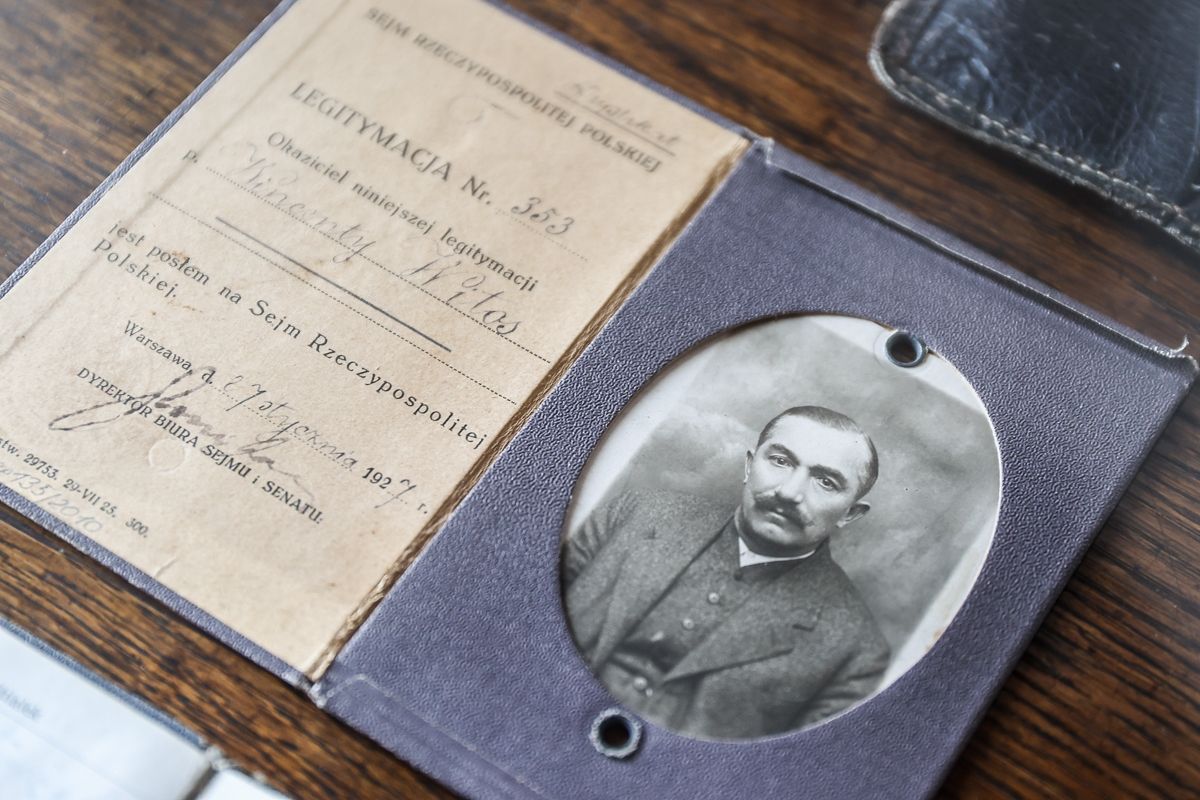 SEJM RZECZYPOSPOLITEJ POLSKIEJ
LEGITYMACJA Nr. 353
Okaziciel niniejszej legitymacji
p. Wincenty Witos
jest posłem na Sejm Rzeczypospolitej
Polskiej.
Warszawa, d. stycznia 1927 r.
DYREKTOR BIURA SEJMU i SENATU:
29753. 29-VII 25. 300.
135/2010